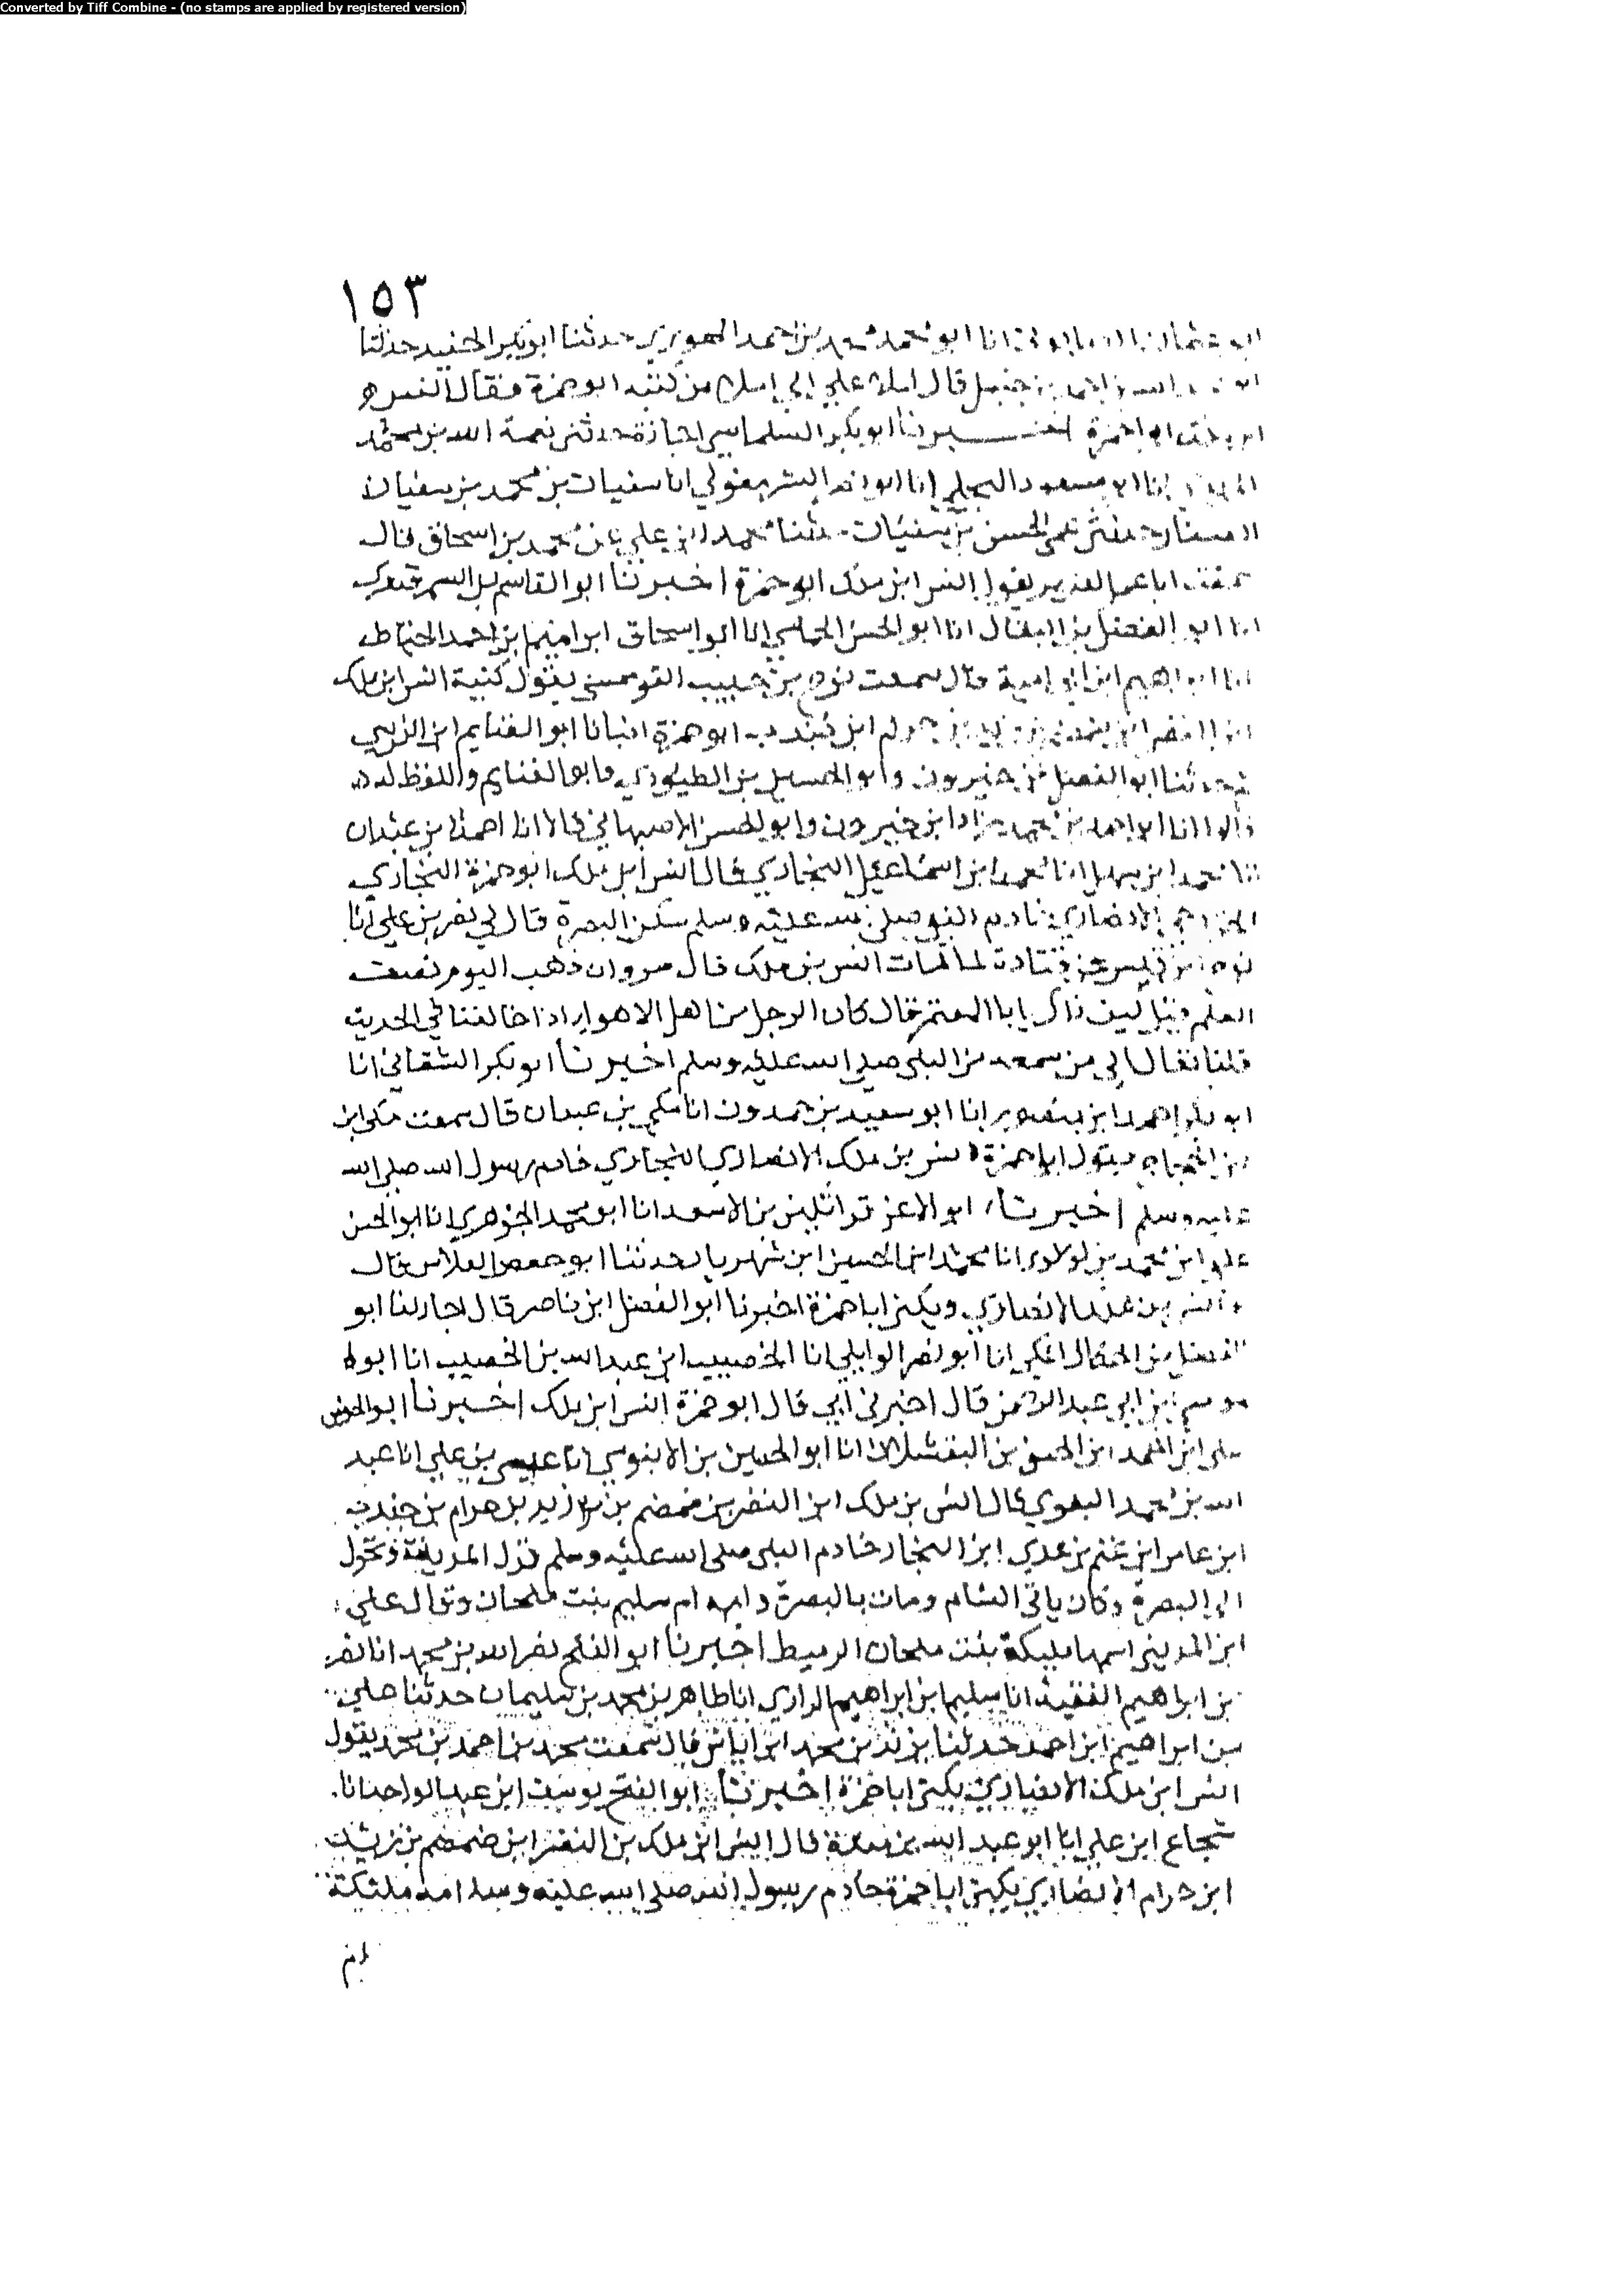 Converted by Tiff Combine - (no stamps are applied by registered version)
١٥٣
انا ابو محمد بن احمد حدثنا ابو بكر الجنيد حدثنا
بن حنبل قال املاه علي ابي املاء من كنيته ابو حمزة فقال انس
ابا حمزة اخبرنا ابو بكر السلماسي اجازة حدثني نعمة الله بن محمد
انا ابو مسعود البجلي انا ابو انا سفيان بن محمد بن سفيان
حدثني عمي الحسن بن سفيان محمد ابن علي عن محمد بن اسحاق قال
سمعت ابا عمر الضرير يقول انس ابن ملك ابو حمزة اخبرنا ابو القاسم بن السمرقندي
انا ابو الفضل بن البقال انا ابو الحسن الحمامي انا ابو اسحاق ابراهيم بن احمد
انا ابراهيم ابن ابي امية قال سمعت نوح بن حبيب القومسي يقول كنية انس ابن ملك
ابن النضر ابن ضمضم بن زيد بن حرام ابن جندب ابو حمزة انبانا ابو الغنايم ابن النرسي
حدثنا ابو الفضل بن خيرون وابو الحسين بن الطيوري وابو الغنايم واللفظ له
قالوا انا ابو احمد بن محمد زاد ابن خيرون وابو الحسن الاصبهاني قالا انا احمد بن عبدان
انا محمد ابن سهل انا محمد ابن اسماعيل البخاري قال انس ابن ملك ابو حمزة النجاري
الخزرجي الانصاري خادم النبي صلى الله عليه وسلم سكن البصرة قال لي نصر بن علي انا
نوح ابن قيس عن قتادة لما مات انس بن ملك قال مروان ذهب اليوم نصف
العلم فقيل كيف ذاك يا ابا المعتمر قال كان الرجل من اهل الاهواء اذا خالفنا في الحديث
قلنا تعال الى من سمعه من النبي صلى الله عليه وسلم اخبرنا ابو بكر الشقاني انا
ابو بكر احمد ابن منصور انا ابو سعيد بن حمدون انا مكي بن عبدان قال سمعت مسلم ابن
بن الحجاج يقول ابا حمزة انس بن ملك الانصاري النجاري خادم رسول الله صلى الله
عليه وسلم اخبرنا ابو الاعز قراتكين بن الاسعد انا ابو محمد الجوهري انا ابو الحسن
علي ابن محمد بن لولو انا محمد ابن الحسين ابن شهريار حدثنا ابو حفص الفلاس قال
وانس بن ملك الانصاري ويكنى ابا حمزة اخبرنا ابو الفضل ابن ناصر قال اجاز لنا ابو
الفضل بن الحكاك المكي انا ابو نصر الوايلي انا الخصيب ابن عبد الله بن الخصيب انا ابو
موسى بن ابي عبد الرحمن قال اخبرني ابي قال ابو حمزة انس ابن ملك اخبرنا ابو الحسن
علي ابن محمد ابن الحسن بن البقشلان انا ابو الحسين بن الابنوسي انا عيسى بن علي انا عبد
الله بن محمد البغوي قال انس بن ملك ابن النضر بن ضمضم بن زيد بن حرام بن جندب
ابن عامر ابن غنم بن عدي ابن النجار خادم النبي صلى الله عليه وسلم نزل المدينة وتحول
الى البصرة وكان ياتي الشام ومات بالبصرة وامه ام سليم بنت ملحان وقال علي
ابن المديني اسمها مليكة بنت ملحان الرميط اخبرنا ابو الفتح نصر الله بن محمد انا نصر
بن ابراهيم الفقيه انا سليم ابن ابراهيم الرازي انا طاهر بن محمد بن سليمان حدثنا علي
بن ابراهيم ابن احمد حدثنا يزيد بن محمد ابن اياس قال سمعت محمد بن احمد بن محمد يقول
انس ابن ملك الانصاري يكنى ابا حمزة اخبرنا ابو الفتح يوسف ابن عبد الواحد انا
شجاع ابن علي انا ابو عبد الله بن مندة قال انس ابن ملك بن النضر ابن ضمضم بن زيد
ابن حرام الانصاري يكنى ابا حمزة خادم رسول الله صلى الله عليه وسلم امه مليكة